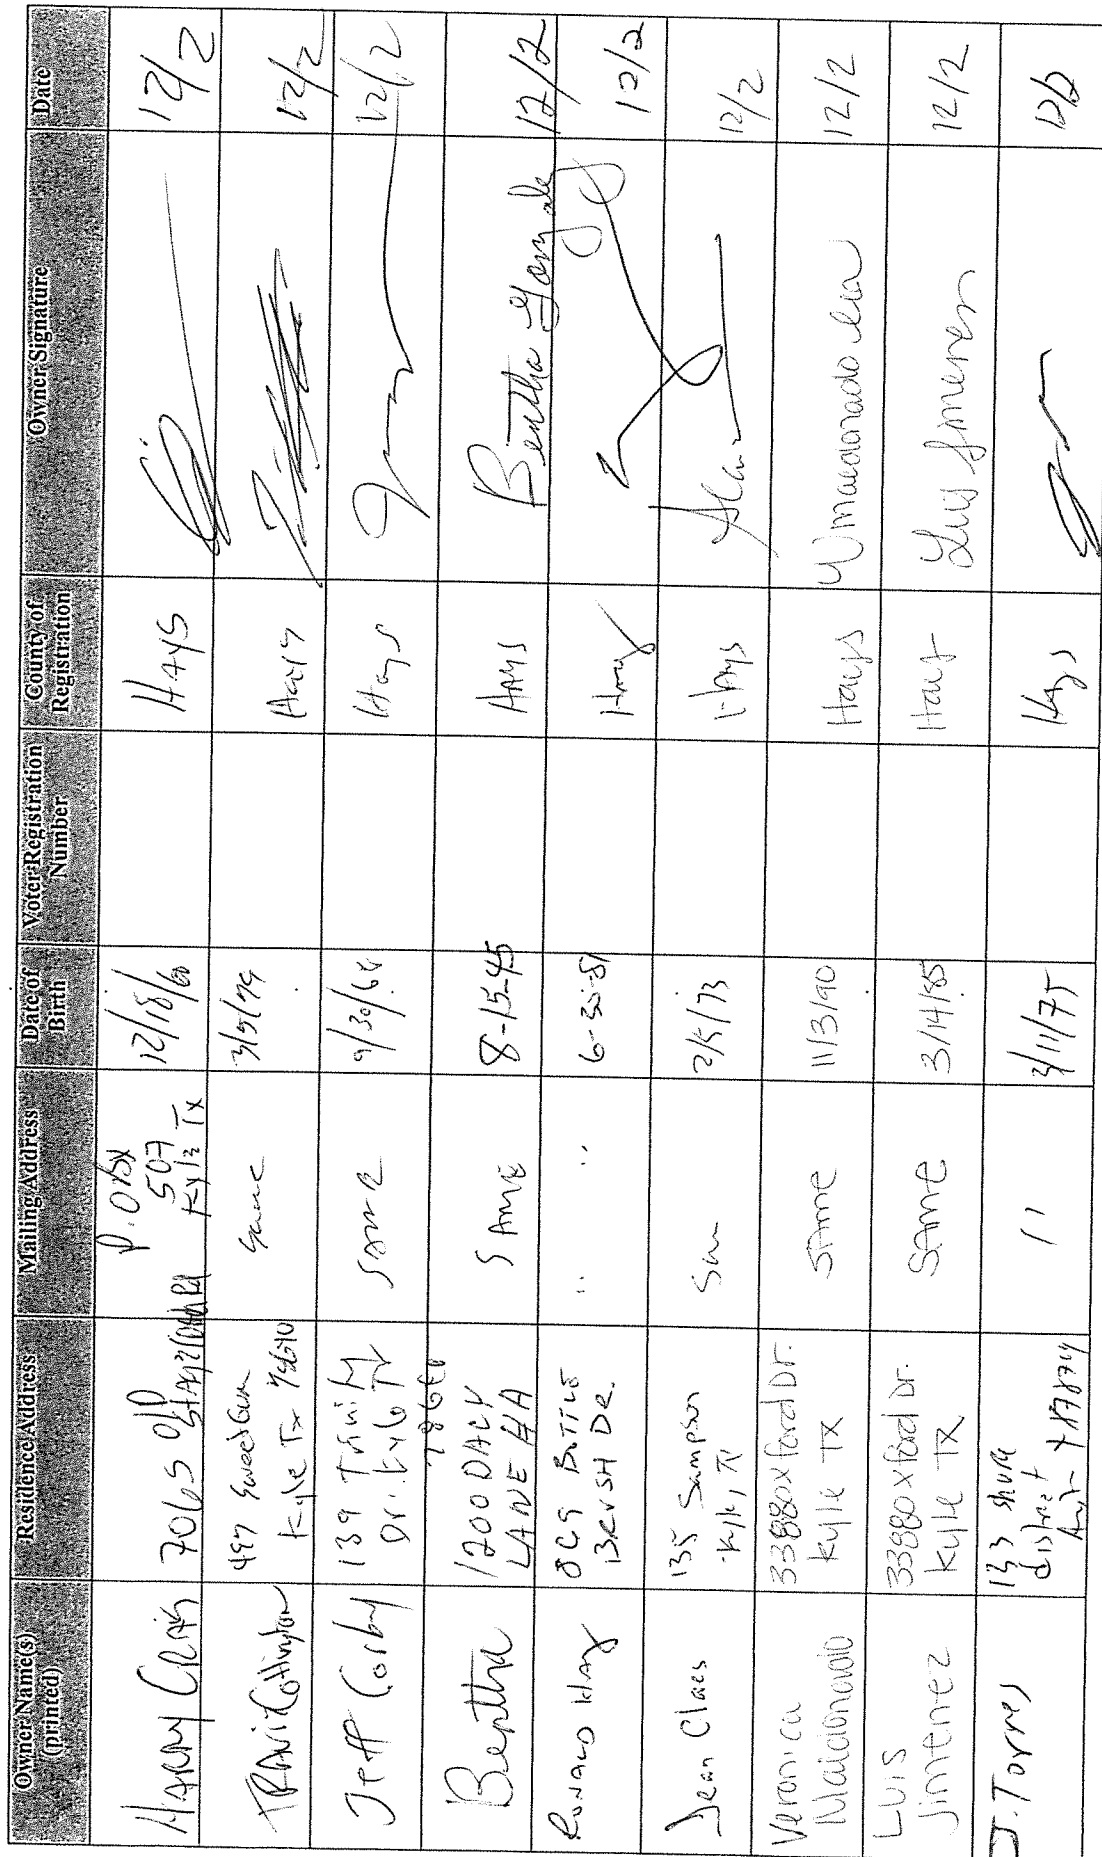 Owner Name(s) (printed) Residence Address Mailing Address Date of Birth Voter Registration Number County of Registration Owner Signature Date
Harry Craig 7065 Old Stagecoach Rd P.O. Box 507 Kyle Tx 12/18/60 HAYS 12/2
Travis Cottington 497 Sweet Gum Kyle Tx 78640 Same 3/5/79 Hays 12/2
Jeff Corby 139 Trinity Dr. Kyle TX Same 9/30/64 Hays 12/2
Bertha 1200 DALY LANE #A SAME 8-15-45 HAYS Bertha Gonzale 12/2
Ronald Hay BOTTLE BRUSH DR. " " 6-30-81 Hays 12/2
Jean Claes 135 Sampson Kyle, TX 2/5/73 Hays 12/2
Veronica Maldonado 338 Oxford Dr. Kyle TX SAme 11/3/90 Hays 12/2
Luis Jimenez 338 Oxford Dr. Kyle TX SAme 3/14/85 Hays Luis Jimenez 12/2
J. Torres 133 district 11 3/11/75 Hays 12/2